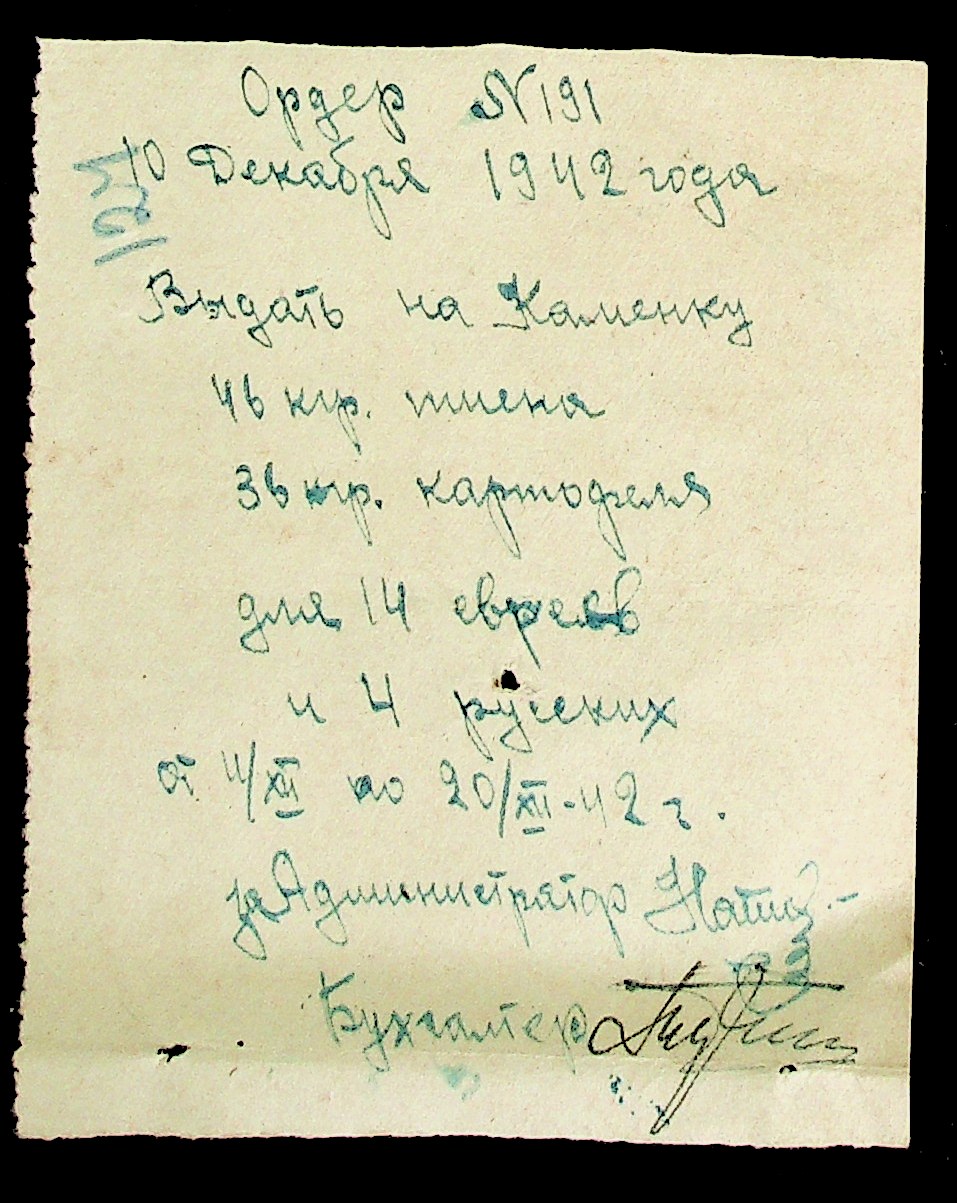 Ордер N 191
10 Декабря 1942 года
Выдать на Каменку
46 кгр. пшена
36 кгр. картофеля
для 14 евреев
и 4 русских
от 11/XII по 20/XII-42 г.
за Администратор
Бухгалтер